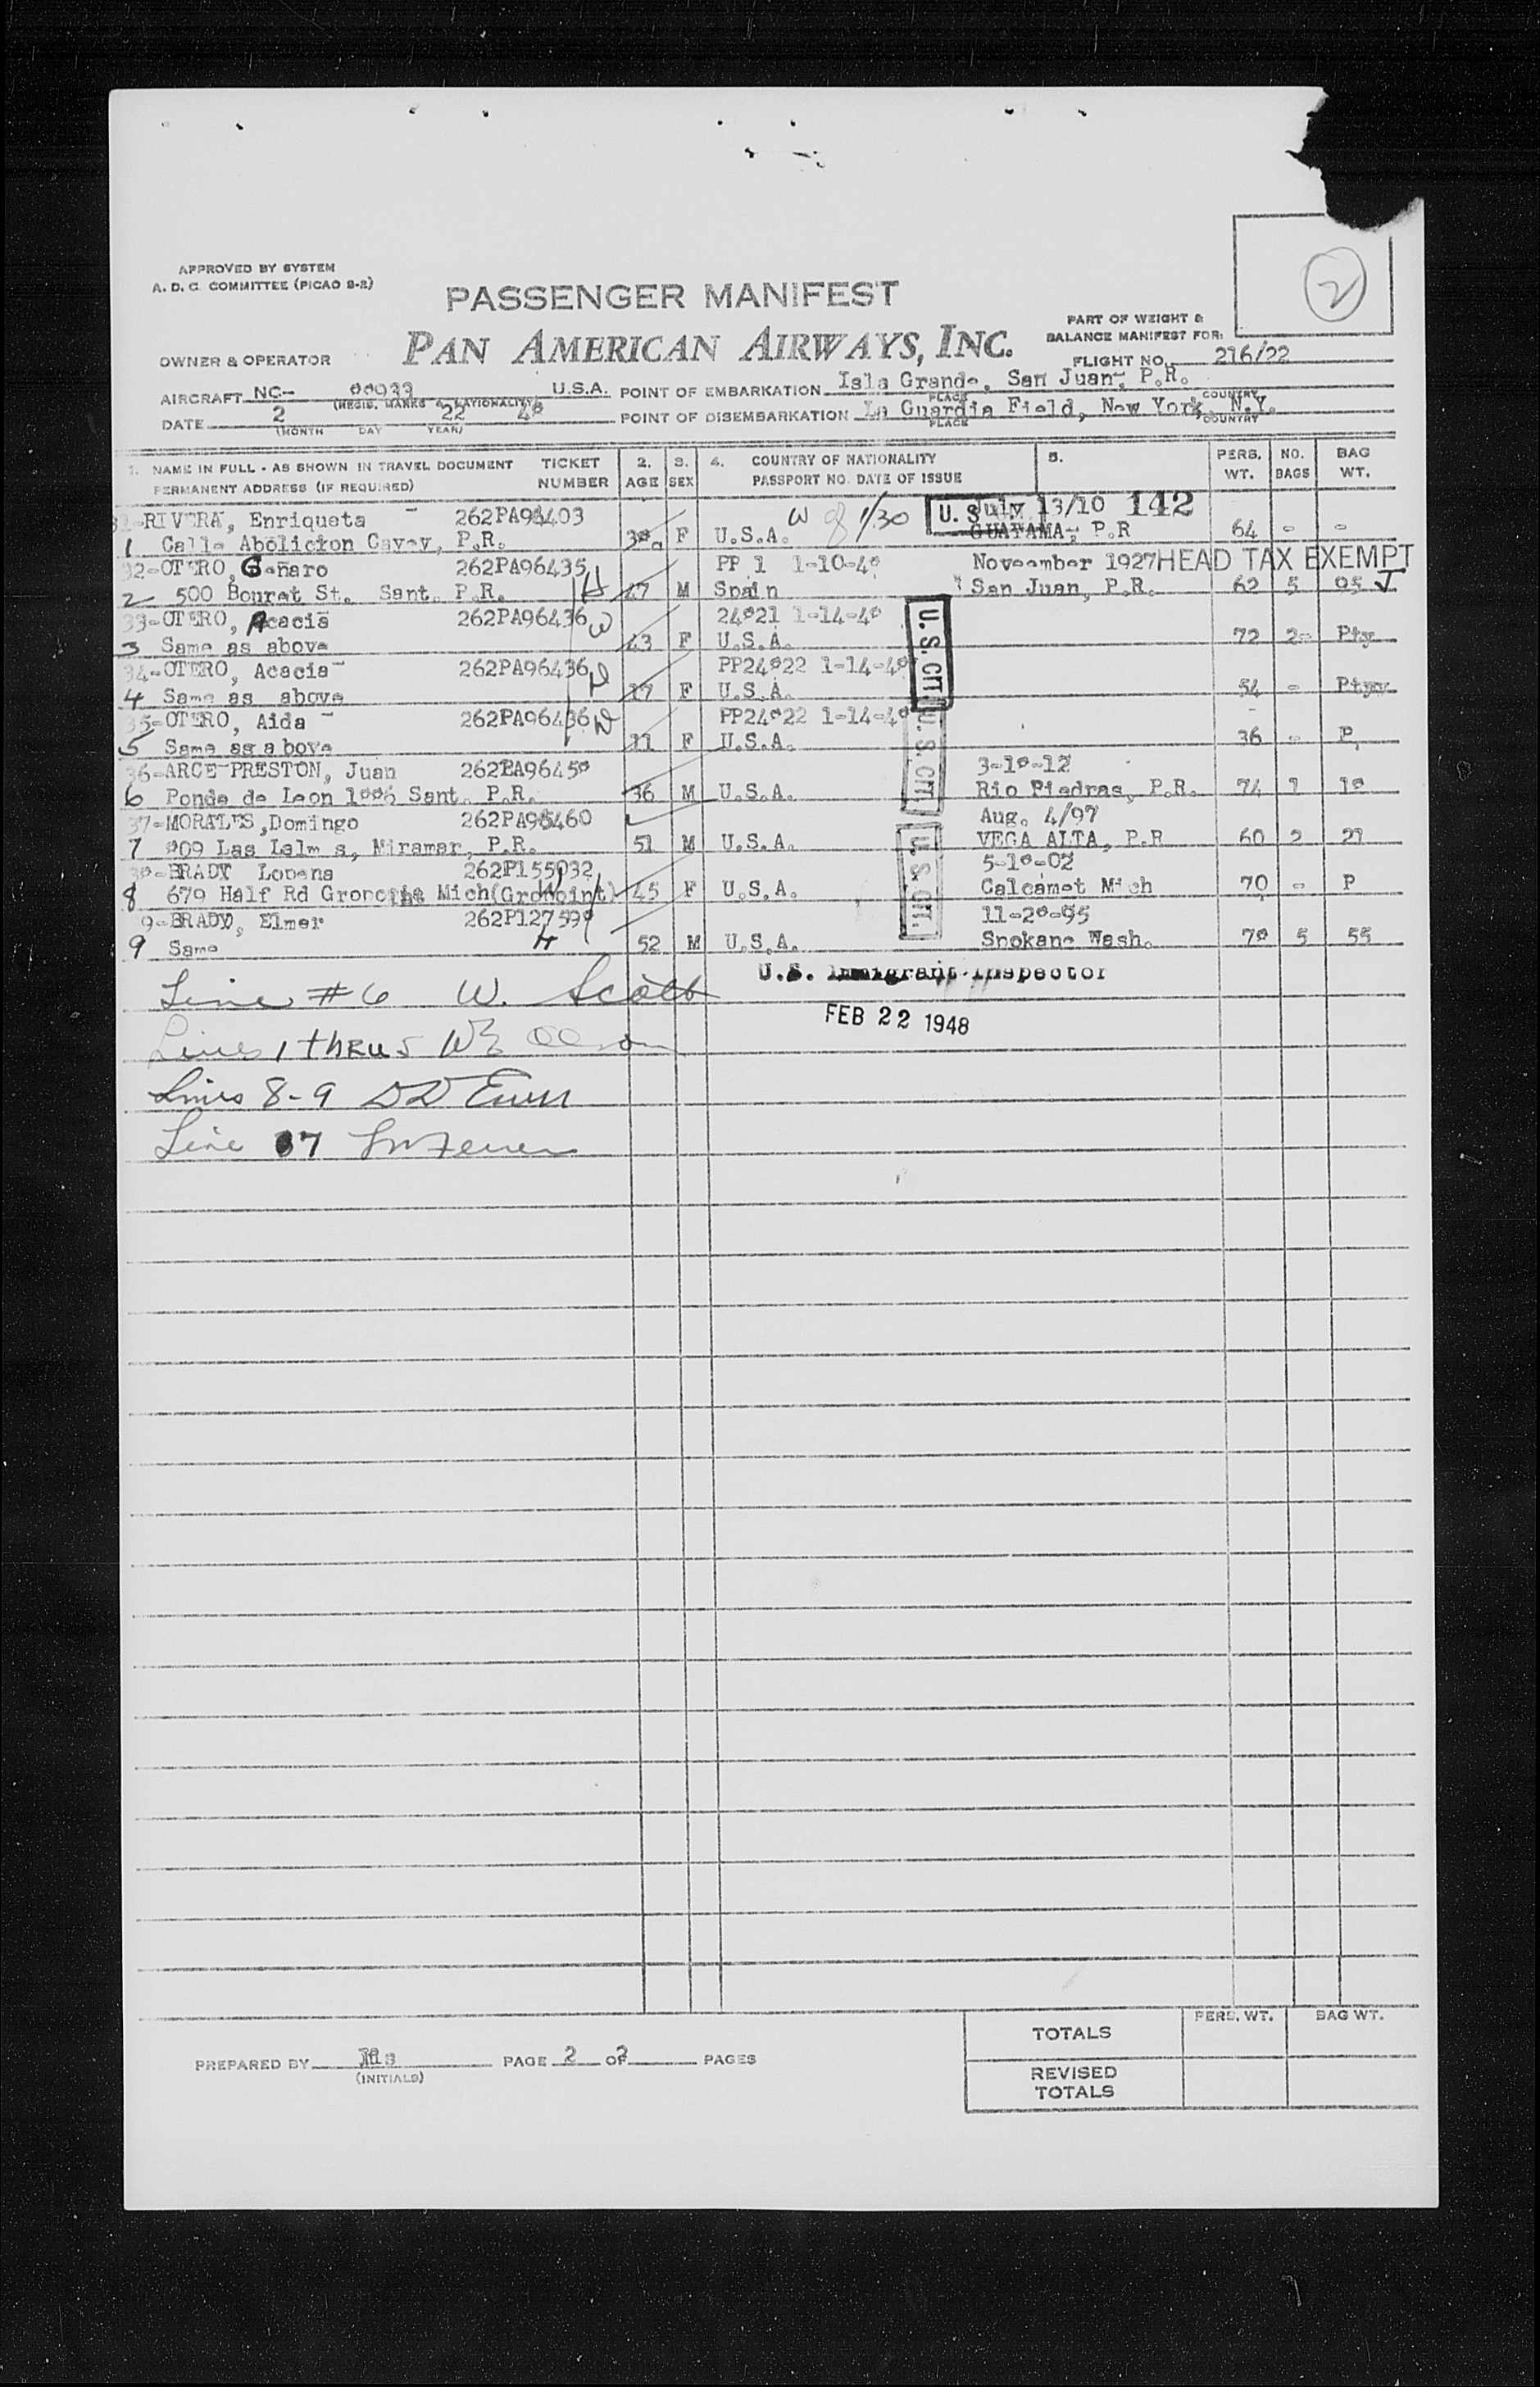 2
APPROVED BY SYSTEM
A. D. C. COMMITTEE (PICAO 9-2)
PASSENGER MANIFEST
PART OF WEIGHT &
BALANCE MANIFEST FOR:
OWNER & OPERATOR PAN AMERICAN AIRWAYS, INC. FLIGHT NO. 216/22
AIRCRAFT NC- U.S.A. POINT OF EMBARKATION Isla Grande, San Juan, P.R.
(REGIS. MARKS & NATIONALITY) PLACE COUNTRY
DATE 2 22 48 POINT OF DISEMBARKATION La Guardia Field, New York, N.Y.
(MONTH DAY YEAR) PLACE COUNTRY
1. NAME IN FULL - AS SHOWN IN TRAVEL DOCUMENT TICKET 2. 3. 4. COUNTRY OF NATIONALITY 5. PERS. NO. BAG
PERMANENT ADDRESS (IF REQUIRED) NUMBER AGE SEX PASSPORT NO. DATE OF ISSUE WT. BAGS WT.
RIVERA, Enriqueta W 1/30 U.S. July 13/10 142
1 Calle Abolicion P.R. F U.S.A. GUAYAMA, P.R 64 - -
32-OTERO, Genaro 262PA96435 PP 1 1-10-48 November 1927 HEAD TAX EXEMPT
2 500 Bouret St. Sant. P.R. 47 M Spain San Juan, P.R. 62 5 95
33-OTERO, Acacia 262PA96436 W 24821 1-14-48
3 Same as above 43 F U.S.A. U.S. CIT. 72 2- Pty
34-OTERO, Acacia 262PA96436 PP24822 1-14-48
4 Same as above 17 F U.S.A. 54 -
35-OTERO, Aida 262PA96436 PP24822 1-14-48
5 Same as above 11 F U.S.A. U.S. CIT. 36 - P.
36-ARCE-PRESTON, Juan 262PA96450 3-10-12
6 Ponde de Leon Sant. P.R. 36 M U.S.A. Rio Piedras, P.R. 74 1 18
37-MORALES, Domingo Aug. 4/97
7 809 Las Miramar, P.R. 51 M U.S.A. VEGA ALTA, P.R 60 2 27
BRADY 262P155032 5-10-02
8 679 Half Rd Mich 45 F U.S.A. U.S. CIT. Calcamet Mich 70 - P
9-BRADY, Elmer 262P127599 11-28-95
9 Same H 52 M U.S.A. Spokane Wash. 78 5 55
Line #6 W. Scott U.S. Immigrant Inspector
FEB 22 1948
Lines 1 thru 5
Lines 8-9
Line 7
PREPARED BY PAGE 2 OF 2 PAGES
(INITIALS)
PERS. WT. BAG WT.
TOTALS
REVISED
TOTALS